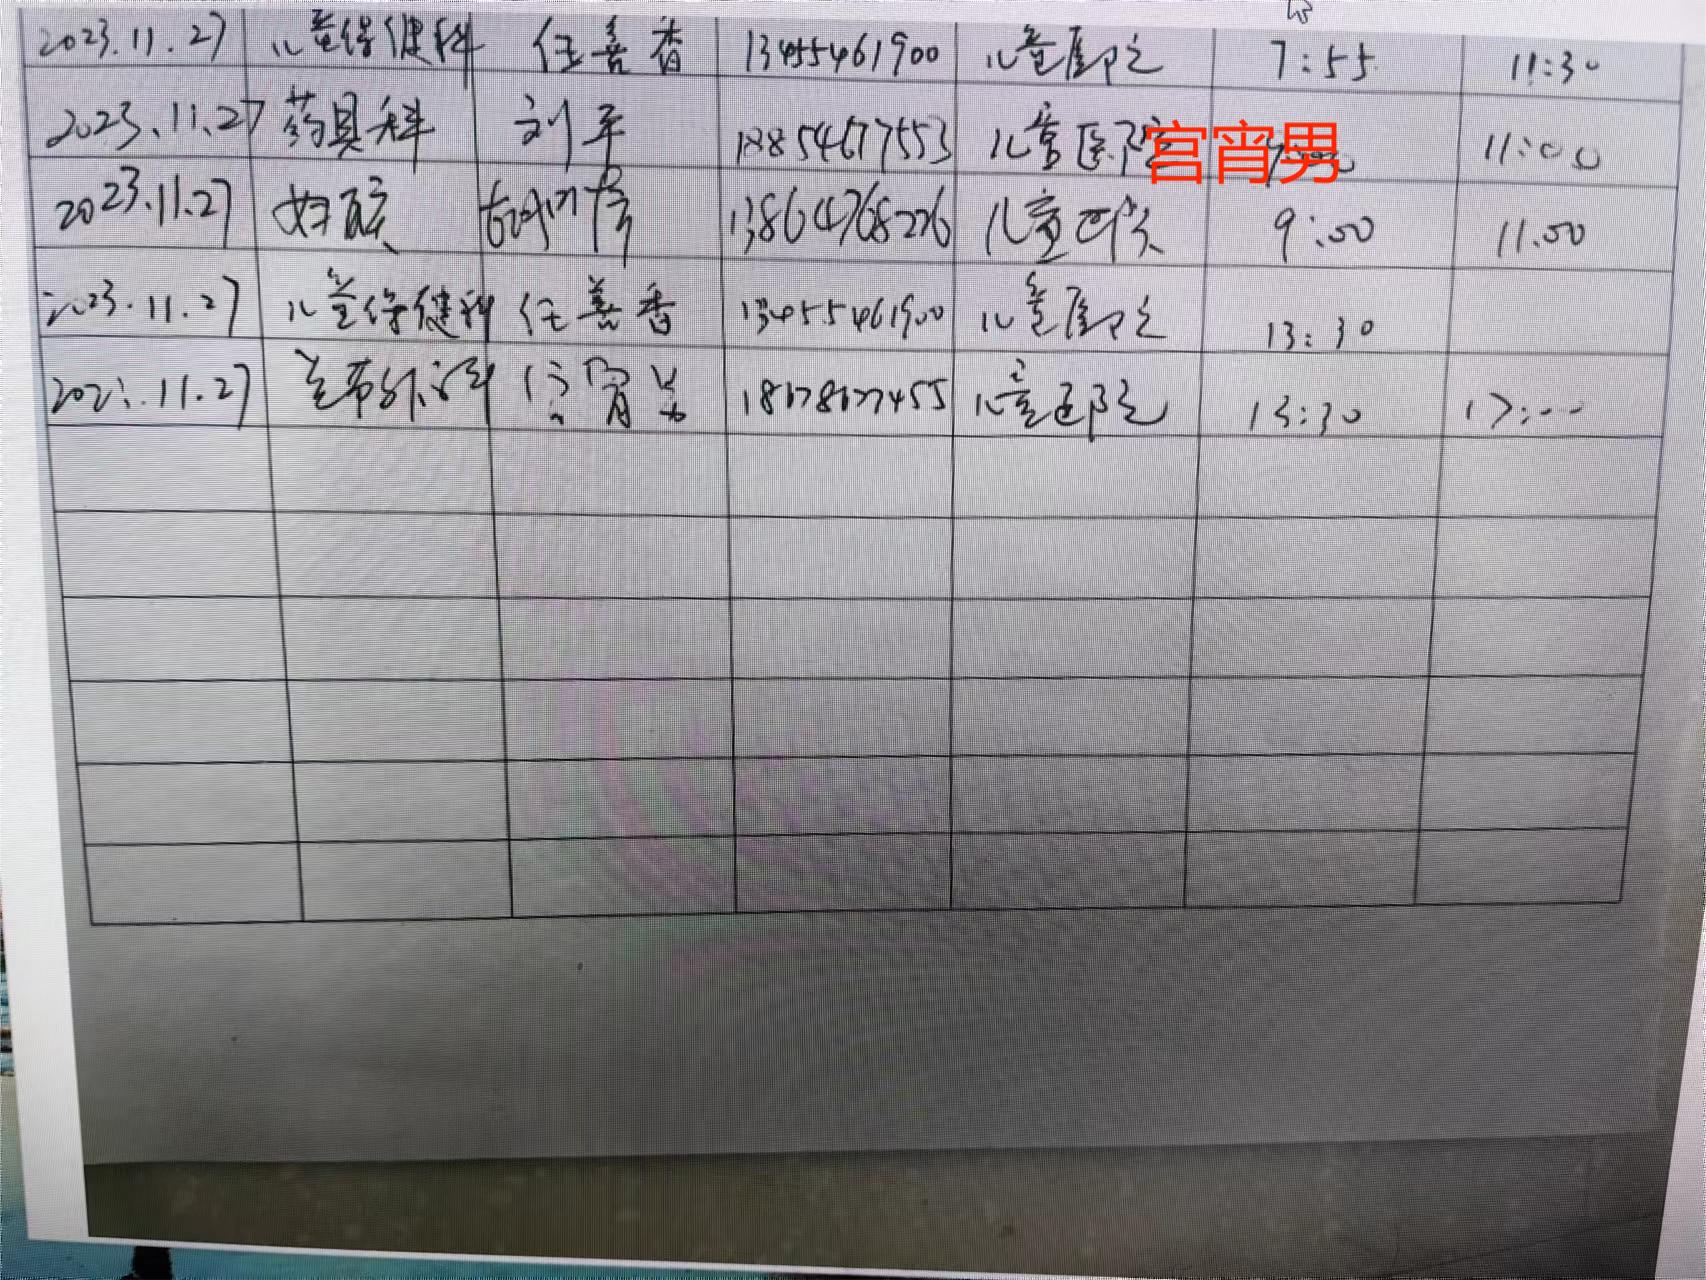 2023.11.27 儿童保健科 任善香 13455461900 儿童医院 7:55 11:30
2023.11.27 药具科 刘平 18854677553 儿童医院 11:00
宫宵男
2023.11.27 妇 13864768226 儿童医院 9:00 11.00
2023.11.27 儿童保健科 任善香 13455461900 儿童医院 13:30
2023.11.27 儿童医院 13:30 17:00